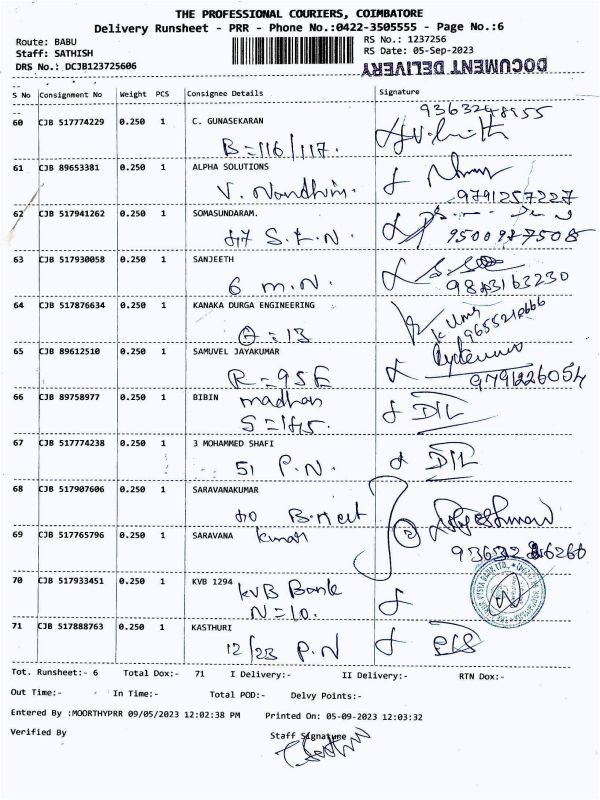 THE PROFESSIONAL COURIERS, COIMBATORE
Delivery Runsheet - PRR - Phone No.:0422-3505555 - Page No.:6
Route: BABU
RS No.: 1237256
Staff: SATHISH
RS Date: 05-Sep-2023
DRS No.: DCJB123725606
DOCUMENT DELIVERY
S No Consignment No Weight PCS Consignee Details Signature
60 CJB 517774229 0.250 1 C. GUNASEKARAN
B=116/117.
61 CJB 89653381 0.250 1 ALPHA SOLUTIONS
9791257227
62 CJB 517941262 0.250 1 SOMASUNDARAM.
S.K.N.
63 CJB 517930058 0.250 1 SANJEETH
6 m.N.
64 CJB 517876634 0.250 1 KANAKA DURGA ENGINEERING
65 CJB 89612510 0.250 1 SAMUVEL JAYAKUMAR
R=95E
9791226054
66 CJB 89758977 0.250 1 BIBIN
madhan
67 CJB 517774238 0.250 1 3 MOHAMMED SHAFI
51 P.N.
68 CJB 517907606 0.250 1 SARAVANAKUMAR
69 CJB 517765796 0.250 1 SARAVANA kumar
70 CJB 517933451 0.250 1 KVB 1294
KVB Bank
N=10.
71 CJB 517888763 0.250 1 KASTHURI
12/23 P.N
Tot. Runsheet:- 6 Total Dox:- 71 I Delivery:- II Delivery:- RTN Dox:-
Out Time:- In Time:- Total POD:- Delvy Points:-
Entered By :MOORTHYPRR 09/05/2023 12:02:38 PM Printed On: 05-09-2023 12:03:32
Verified By
Staff Signature